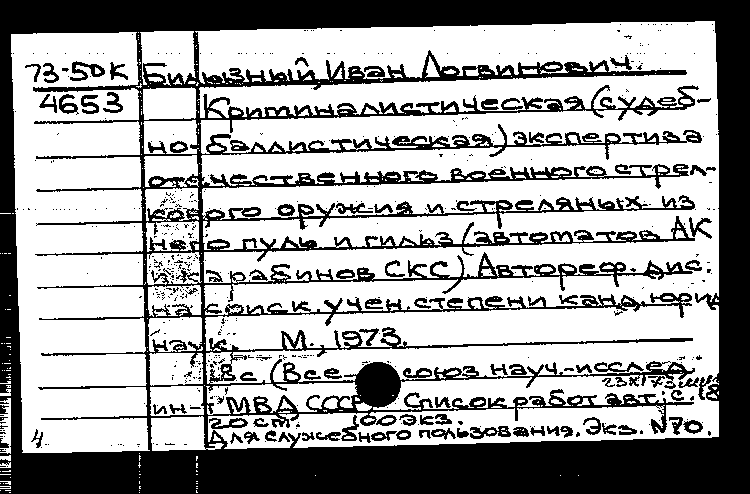 73-5DK Билызный, Иван Логвинович.
4653 Криминалистическая (судеб-
но-баллистическая) экспертиза
отечественного военного стрел-
кового оружия и стреляных из
него пуль и гильз (автоматов АК
и карабинов СКС). Автореф. дис.
на соиск. учен. степени канд. юрид.
наук. М., 1973.
18 с. (Все союз. науч.-исслед.
ин-т МВД СССР Список работ авт.: с.
20 ст. 100 экз.
4 Для служебного пользования. Экз. №70.